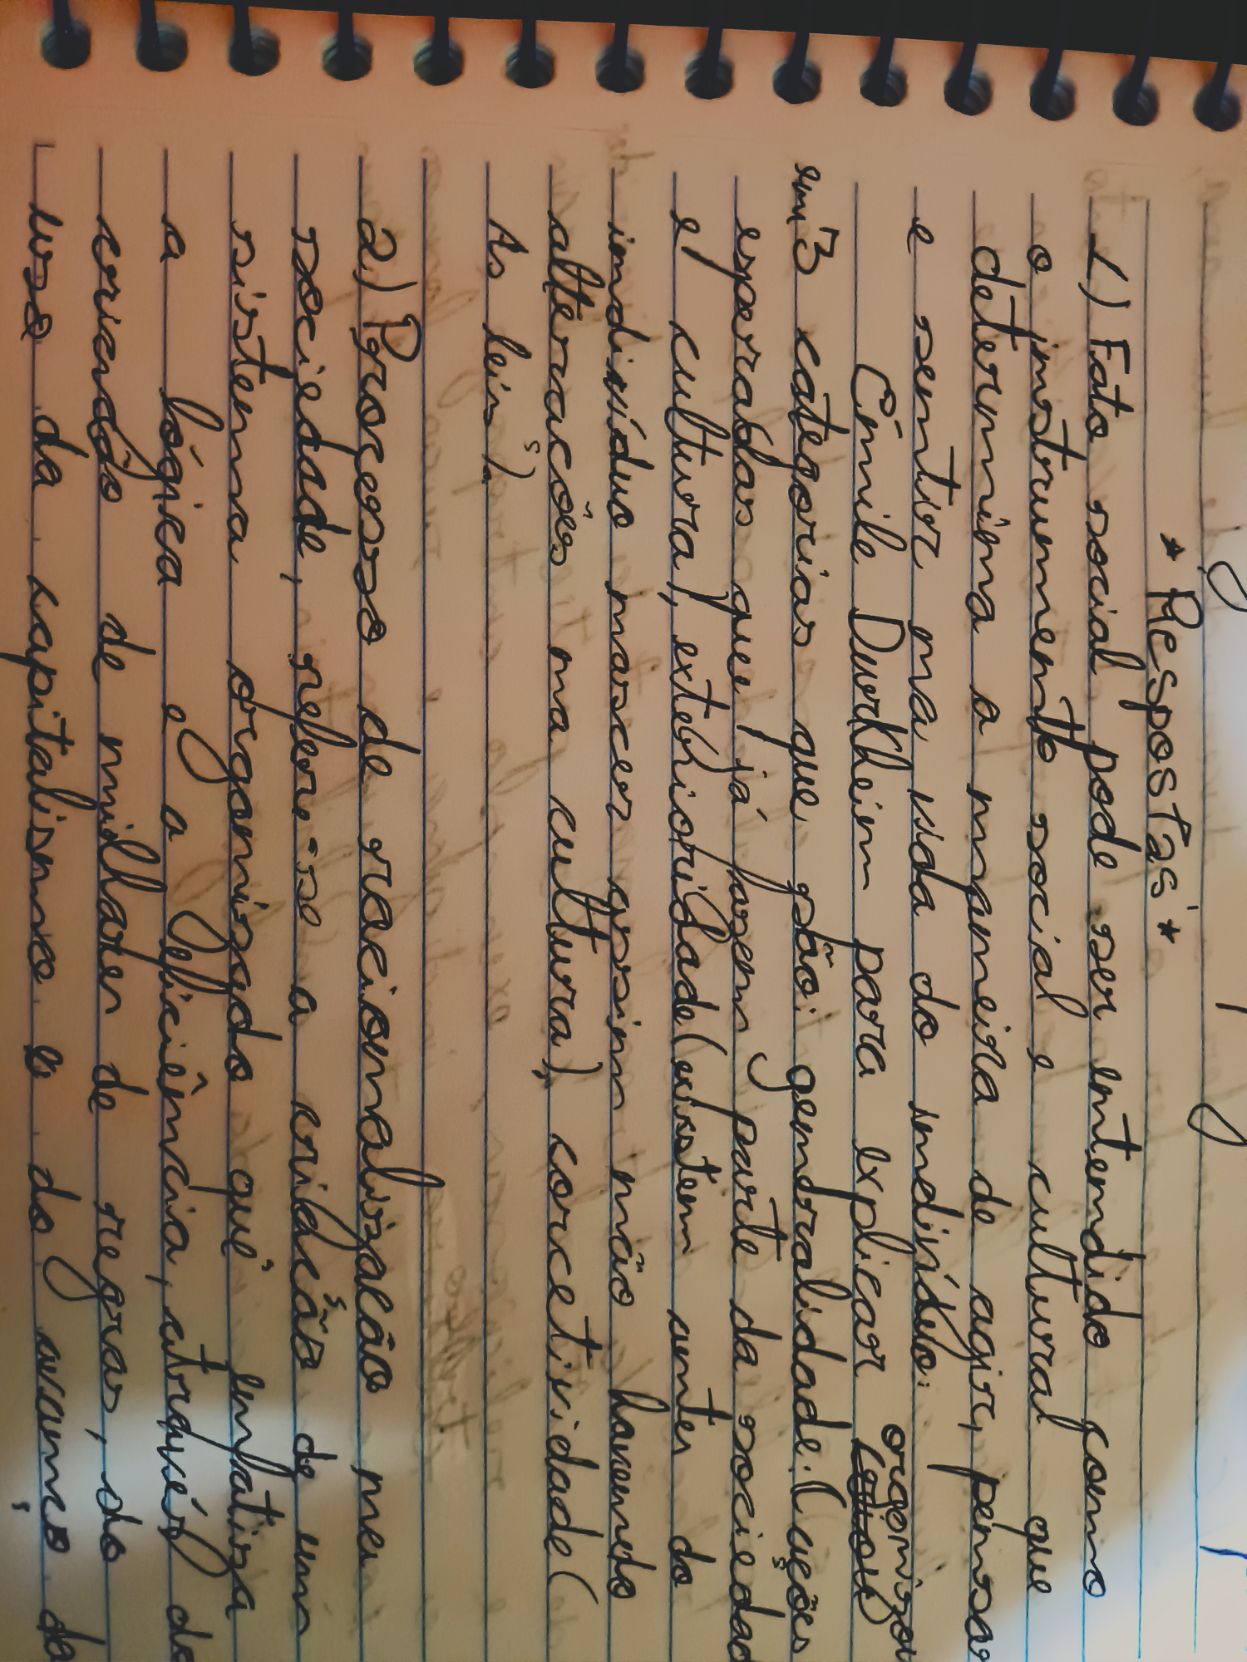 * Respostas *
1) Fato social pode ser entendido como
o instrumento social e cultural que
determina a maneira de agir, pensar
e sentir na vida do indivíduo.
Émile Durkheim para explicar organizou
em 3 categorias que são: generalidade: (ações
esperadas que já fazem parte da sociedad
e cultura), exterioridade (existem antes do
indivíduo nascer assim não havendo
alterações na cultura), corcetividade (
As leis).
2) Processo de racionalização na
sociedade, refere-se a criação de um
sistema organizado que enfatiza
a lógica e a eficiência, através da
criação de milhares de regras, do
uso da capitalismo e do avanço da